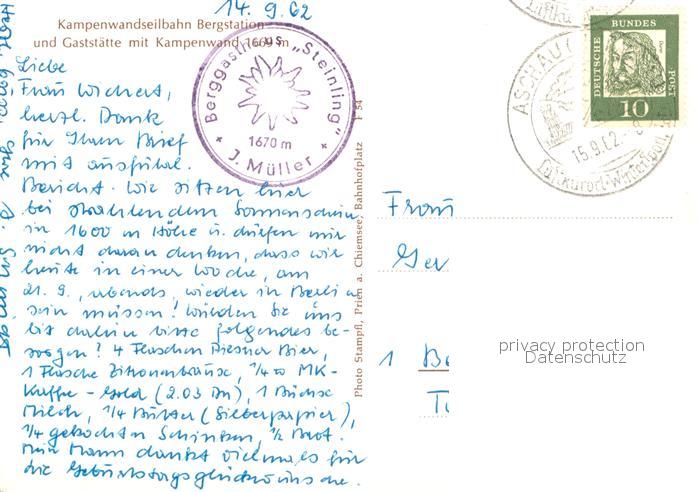 14.9.62
Kampenwandseilbahn Bergstation
und Gaststätte mit Kampenwand 1669 m
Liebe
Frau Wichert,
herzl. Dank
für Ihren Brief
mit ausführl.
Bericht. Wir sitzen hier
bei strahlendem Sonnenschein
in 1600 m Höhe u. dürfen mir
nicht daran denken, dass wir
heute in einer Woche, am
21. 9., abends, wieder in Berlin
sein müssen! Würden Sie uns
bis dahin bitte folgendes be-
sorgen? 4 Flaschen Bier,
1 Flasche Zitronenbrause, 1/4 MK-
Kaffee - Gold (2.03 Dm), 1 Büchse
Milch, 1/4 Butter (Silberpapier),
1/4 gekochten Schinken, 1/2 Brot.
Mein Mann dankt vielmals für
die Geburtstagsglückwünsche.
Berggasthaus „Steinling"
1670 m
J. Müller
Photo Stampfl, Prien a. Chiemsee, Bahnhofplatz
F 54
DEUTSCHE BUNDES POST
Dürer
10
ASCHAU
15.9.62.-8
Luftkurort-Wintersport
Frau
Ger
1 Be
privacy protection
Datenschutz